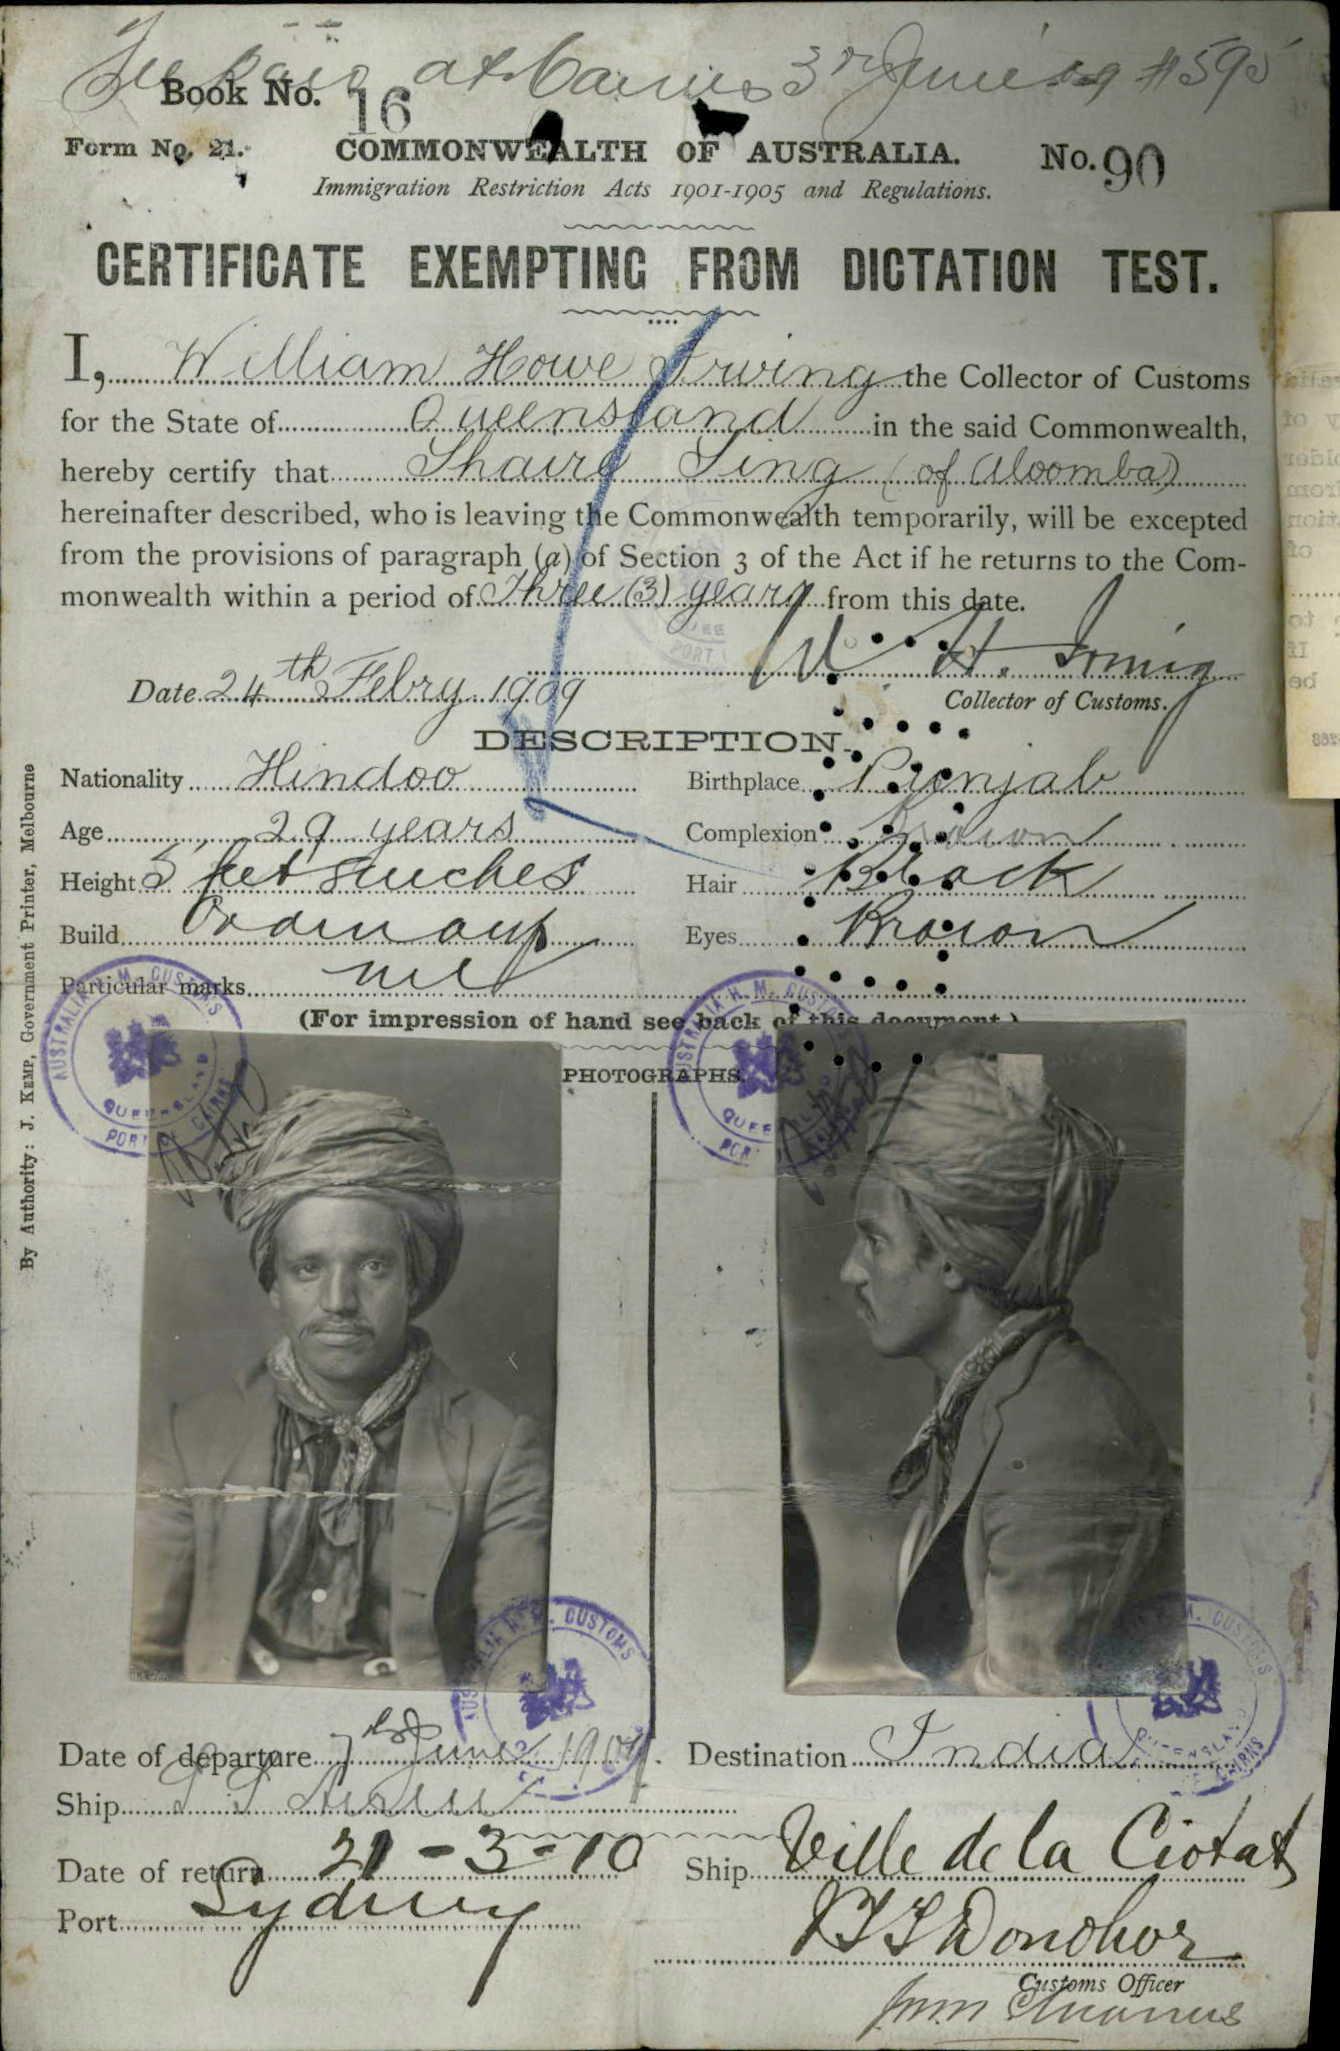 Fee paid at Cairns 3rd June 09 # 595
Book No. 16
Form No. 21.
COMMONWEALTH OF AUSTRALIA.
No. 90
Immigration Restriction Acts 1901-1905 and Regulations.
CERTIFICATE EXEMPTING FROM DICTATION TEST.
I, William Howe Irving the Collector of Customs
for the State of Queensland in the said Commonwealth,
hereby certify that Sing (of Aloomba)
hereinafter described, who is leaving the Commonwealth temporarily, will be excepted
from the provisions of paragraph (a) of Section 3 of the Act if he returns to the Com-
monwealth within a period of Three (3) years from this date.
W. H. Irving
Date 24th Febry. 1909
Collector of Customs.
DESCRIPTION.
Nationality Hindoo
Birthplace Punjab
Age 29 years
Complexion Brown
Height 5 feet 8 inches
Hair Black
Build Ordinary
Eyes Brown
Particular marks nil
(For impression of hand see back of this document.)
PHOTOGRAPHS.
AUSTRALIA H. M. CUSTOMS
QUEENSLAND
PORT OF CAIRNS
By Authority: J. KEMP, Government Printer, Melbourne
Date of departure 7th June 1909.
Destination India
Ship S S
Date of return 21-3-10
Ship Ville de la Ciotat
Port Sydney
Donohoe
Customs Officer